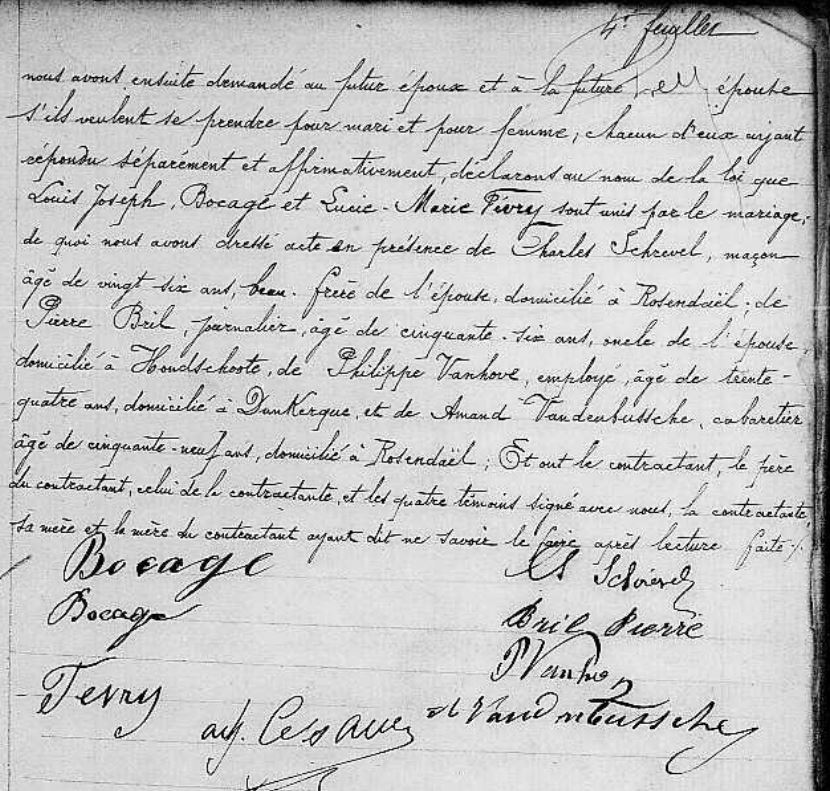 4e feuillet
nous avons ensuite demandé au futur époux et à la future épouse
s'ils veulent se prendre pour mari et pour femme; chacun d'eux ayant
répondu séparément et affirmativement, déclarons au nom de la loi que
Louis Joseph, Bocage et Lucie-Marie Févry sont unis par le mariage,
de quoi nous avons dressé acte en présence de Charles Schrevel, maçon
âgé de vingt six ans, beau-frère de l'épouse, domicilié à Rosendaël; de
Pierre Bril, journalier, âgé de cinquante-six ans, oncle de l'épouse,
domicilié à Hondschoote, de Philippe Vanhove, employé, âgé de trente-
quatre ans, domicilié à Dunkerque, et de Amand Vandenbussche, cabaretier
âgé de cinquante-neuf ans, domicilié à Rosendaël; Et ont le contractant, le père
du contractant, celui de la contractante, et les quatre témoins signé avec nous, la contractante,
sa mère et la mère du contractant ayant dit ne savoir le faire après lecture faite ./.
Bocage
Ch Schrevel
Bocage
Bril Pierre
P Vanhov
Fevry
A Vandenbussche